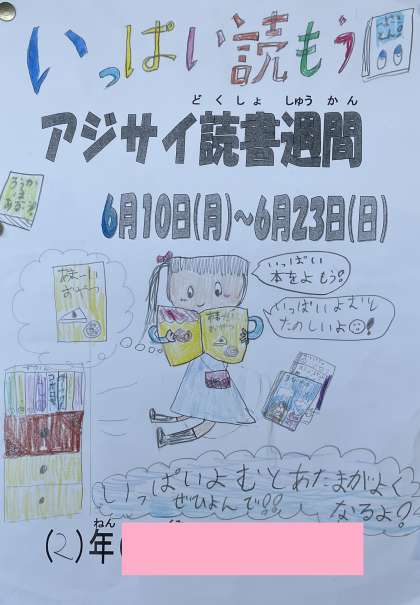 いっぱい読もう
どくしょ しゅうかん
アジサイ読書週間
6月10日(月)~6月23日(日)
いっぱい
本をよもう!
いっぱいよむと
たのしいよ!
あまーい
おやつ
あまーい
おやつ
いっぱいよむとあたまがよく
なるよ?
ぜひよんで!!
ねん
(2)年(